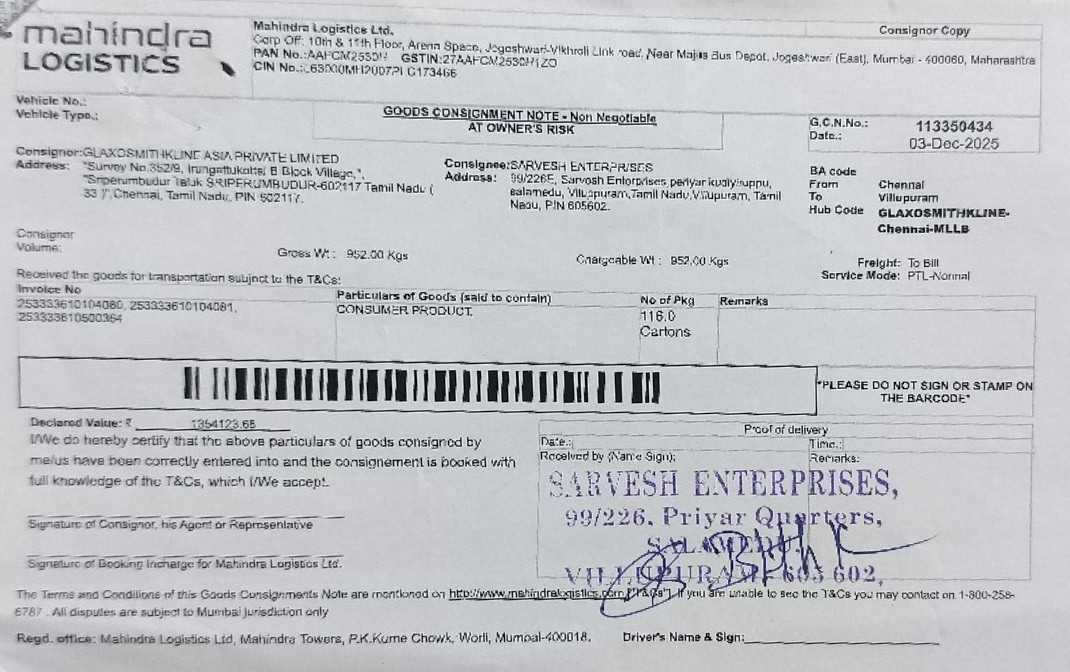 mahindra
LOGISTICS
Mahindra Logistics Ltd.
Corp Off: 10th & 11th Floor, Arena Space, Jogeshwari-Vikhroli Link road, Near Majas Bus Depot, Jogeshwari (East), Mumbai - 400060, Maharashtra
PAN No.:AAFCM2530H GSTIN:27AAFCM2530H1ZO
CIN No.:L63000MH2007PLC173466
Consignor Copy
Vehicle No.:
Vehicle Type.:
GOODS CONSIGNMENT NOTE - Non Negotiable
AT OWNER'S RISK
G.C.N.No.: 113350434
Date.: 03-Dec-2025
Consignor:GLAXOSMITHKLINE ASIA PRIVATE LIMITED
Address: "Survey No.352/9, Irungattukottai B Block Village,",
"Sriperumbudur Taluk SRIPERUMBUDUR-602117 Tamil Nadu (
33 )",Chennai, Tamil Nadu, PIN 602117.
Consignee:SARVESH ENTERPRISES
Address: 99/226E, Sarvesh Enterprises periyar kudiyiruppu,
salamedu, Viluppuram,Tamil Nadu,Viluppuram, Tamil
Nadu, PIN 605602.
BA code
From Chennai
To Villupuram
Hub Code GLAXOSMITHKLINE-
Chennai-MLLB
Consignor
Volume:
Gross Wt : 952.00 Kgs
Chargeable Wt : 952.00 Kgs
Freight: To Bill
Service Mode: PTL-Normal
Received the goods for transportation subject to the T&Cs:
Invoice No
253333610104080, 253333610104081,
253333610500364
Particulars of Goods (said to contain)
CONSUMER PRODUCT.
No of Pkg
116.0
Cartons
Remarks
*PLEASE DO NOT SIGN OR STAMP ON
THE BARCODE*
Declared Value: ₹ 1354123.68
I/We do hereby certify that the above particulars of goods consigned by
me/us have been correctly entered into and the consignement is booked with
full knowledge of the T&Cs, which I/We accept.
Signature of Consignor, his Agent or Representative
Signature of Booking Incharge for Mahindra Logistics Ltd.
Proof of delivery
Date.: Time.:
Received by (Name Sign): Remarks:
SARVESH ENTERPRISES,
99/226, Priyar Quarters,
SALAMEDU,
VILLUPURAM - 605 602,
The Terms and Conditions of this Goods Consignments Note are mentioned on http://www.mahindralogistics.com ["T&Cs"]. If you are unable to see the T&Cs you may contact on 1-800-258-
6787 . All disputes are subject to Mumbai jurisdiction only
Regd. office: Mahindra Logistics Ltd, Mahindra Towers, P.K.Kurne Chowk, Worli, Mumbai-400018. Driver's Name & Sign: